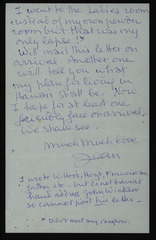 I went to the ladies room
instead of my own powder
room but that was my
only lapse!*
Will mail this letter on
arrival. Another one
will tell you what
my plan for living in
Hawaii shall be. Now
I hope for at least one
friendly face on arrival.
We shall see.
Much much love
Jean
I wrote to Hoss, Hoyt, Francis and
father etc. but do not have
hand address John Winkler
so cannot post his letter.
* Didn't meet any strangers.